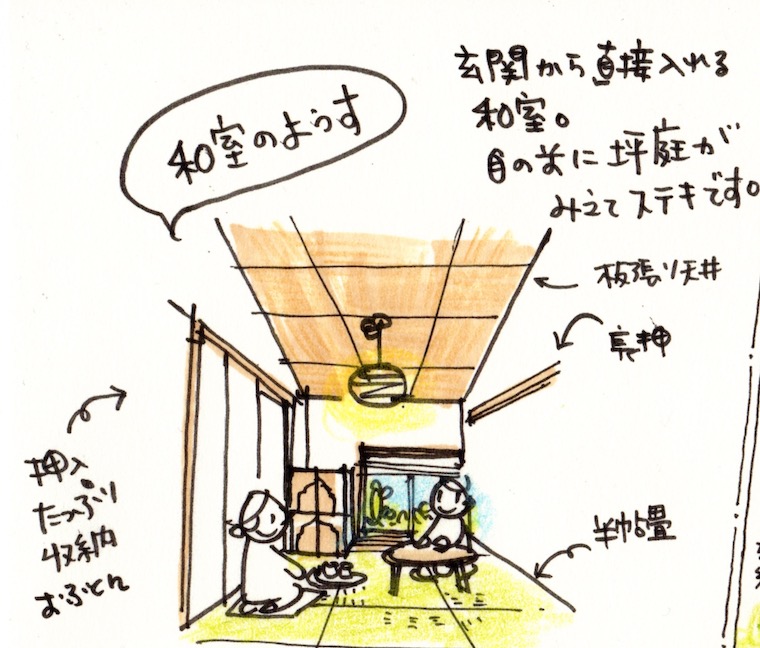 和室のようす
玄関から直接入れる
和室。
目の前に坪庭が
みえてステキです。
板張り天井
長押
押入
たっぷり
収納
おふとん
半帖畳